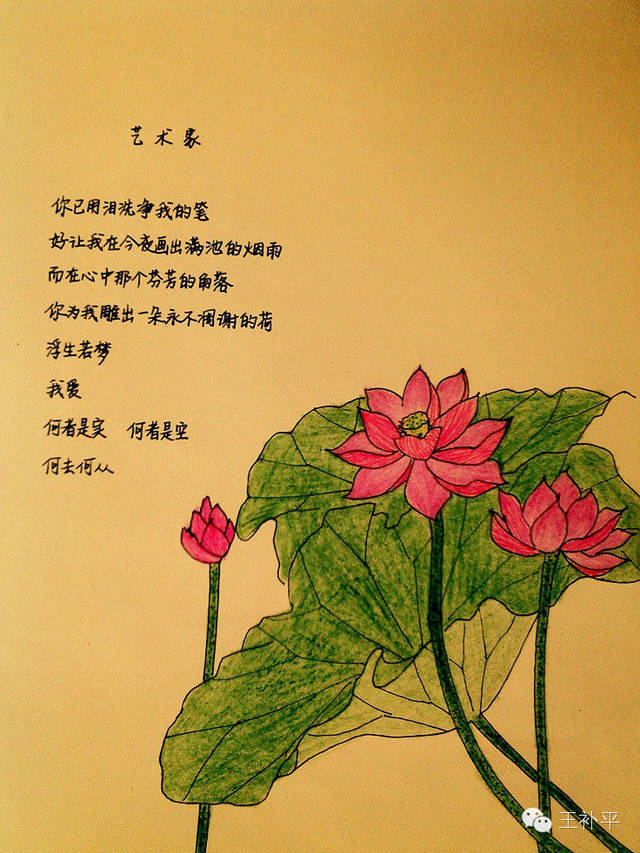 艺术家
你已用泪洗净我的笔
好让我在今夜画出满池的烟雨
而在心中那个芬芳的角落
你为我雕出一朵永不凋谢的荷
浮生若梦
我爱
何者是实 何者是空
何去何从
王补平